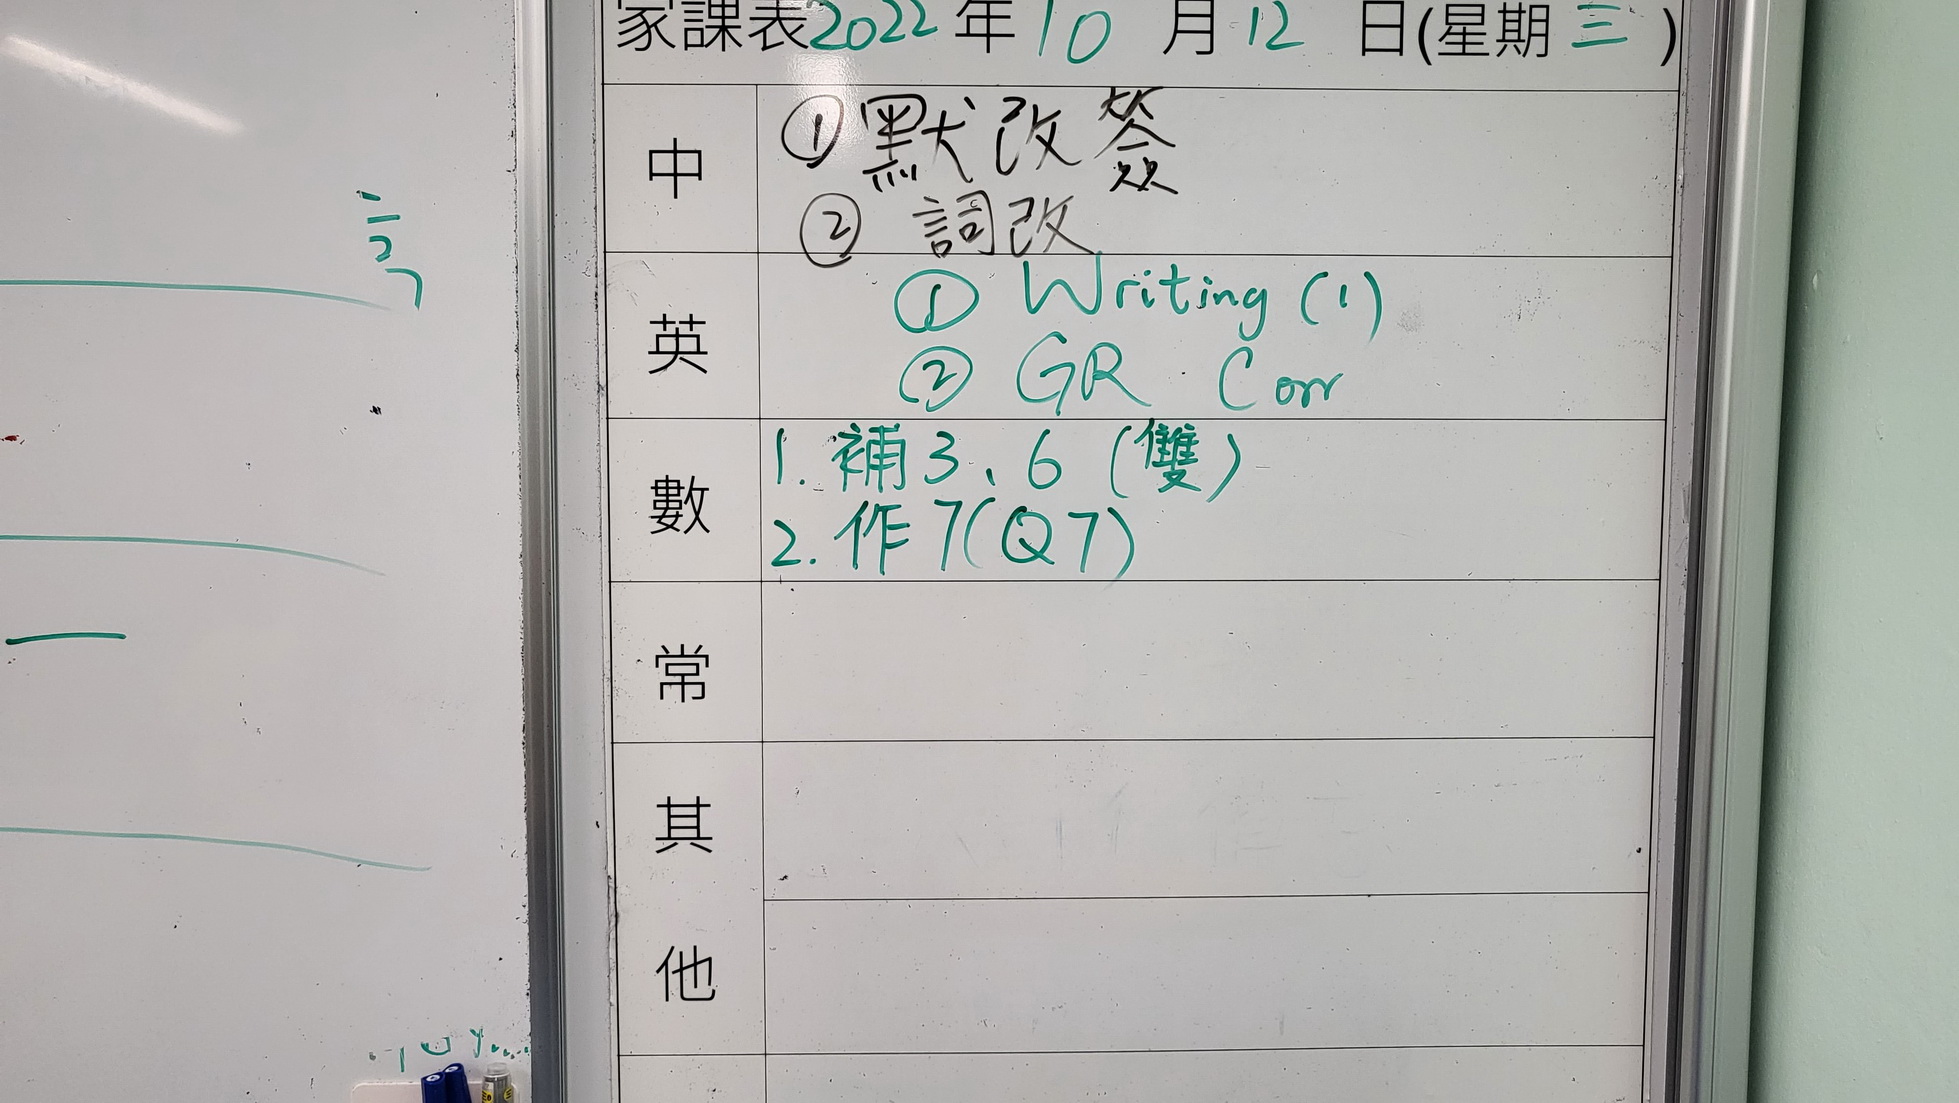 家課表2022年10月12日(星期三)
中
①默改簽
②詞改
英
① Writing (1)
② GR Corr
數
1. 補3、6 (雙)
2. 作7(Q7)
常
其
他